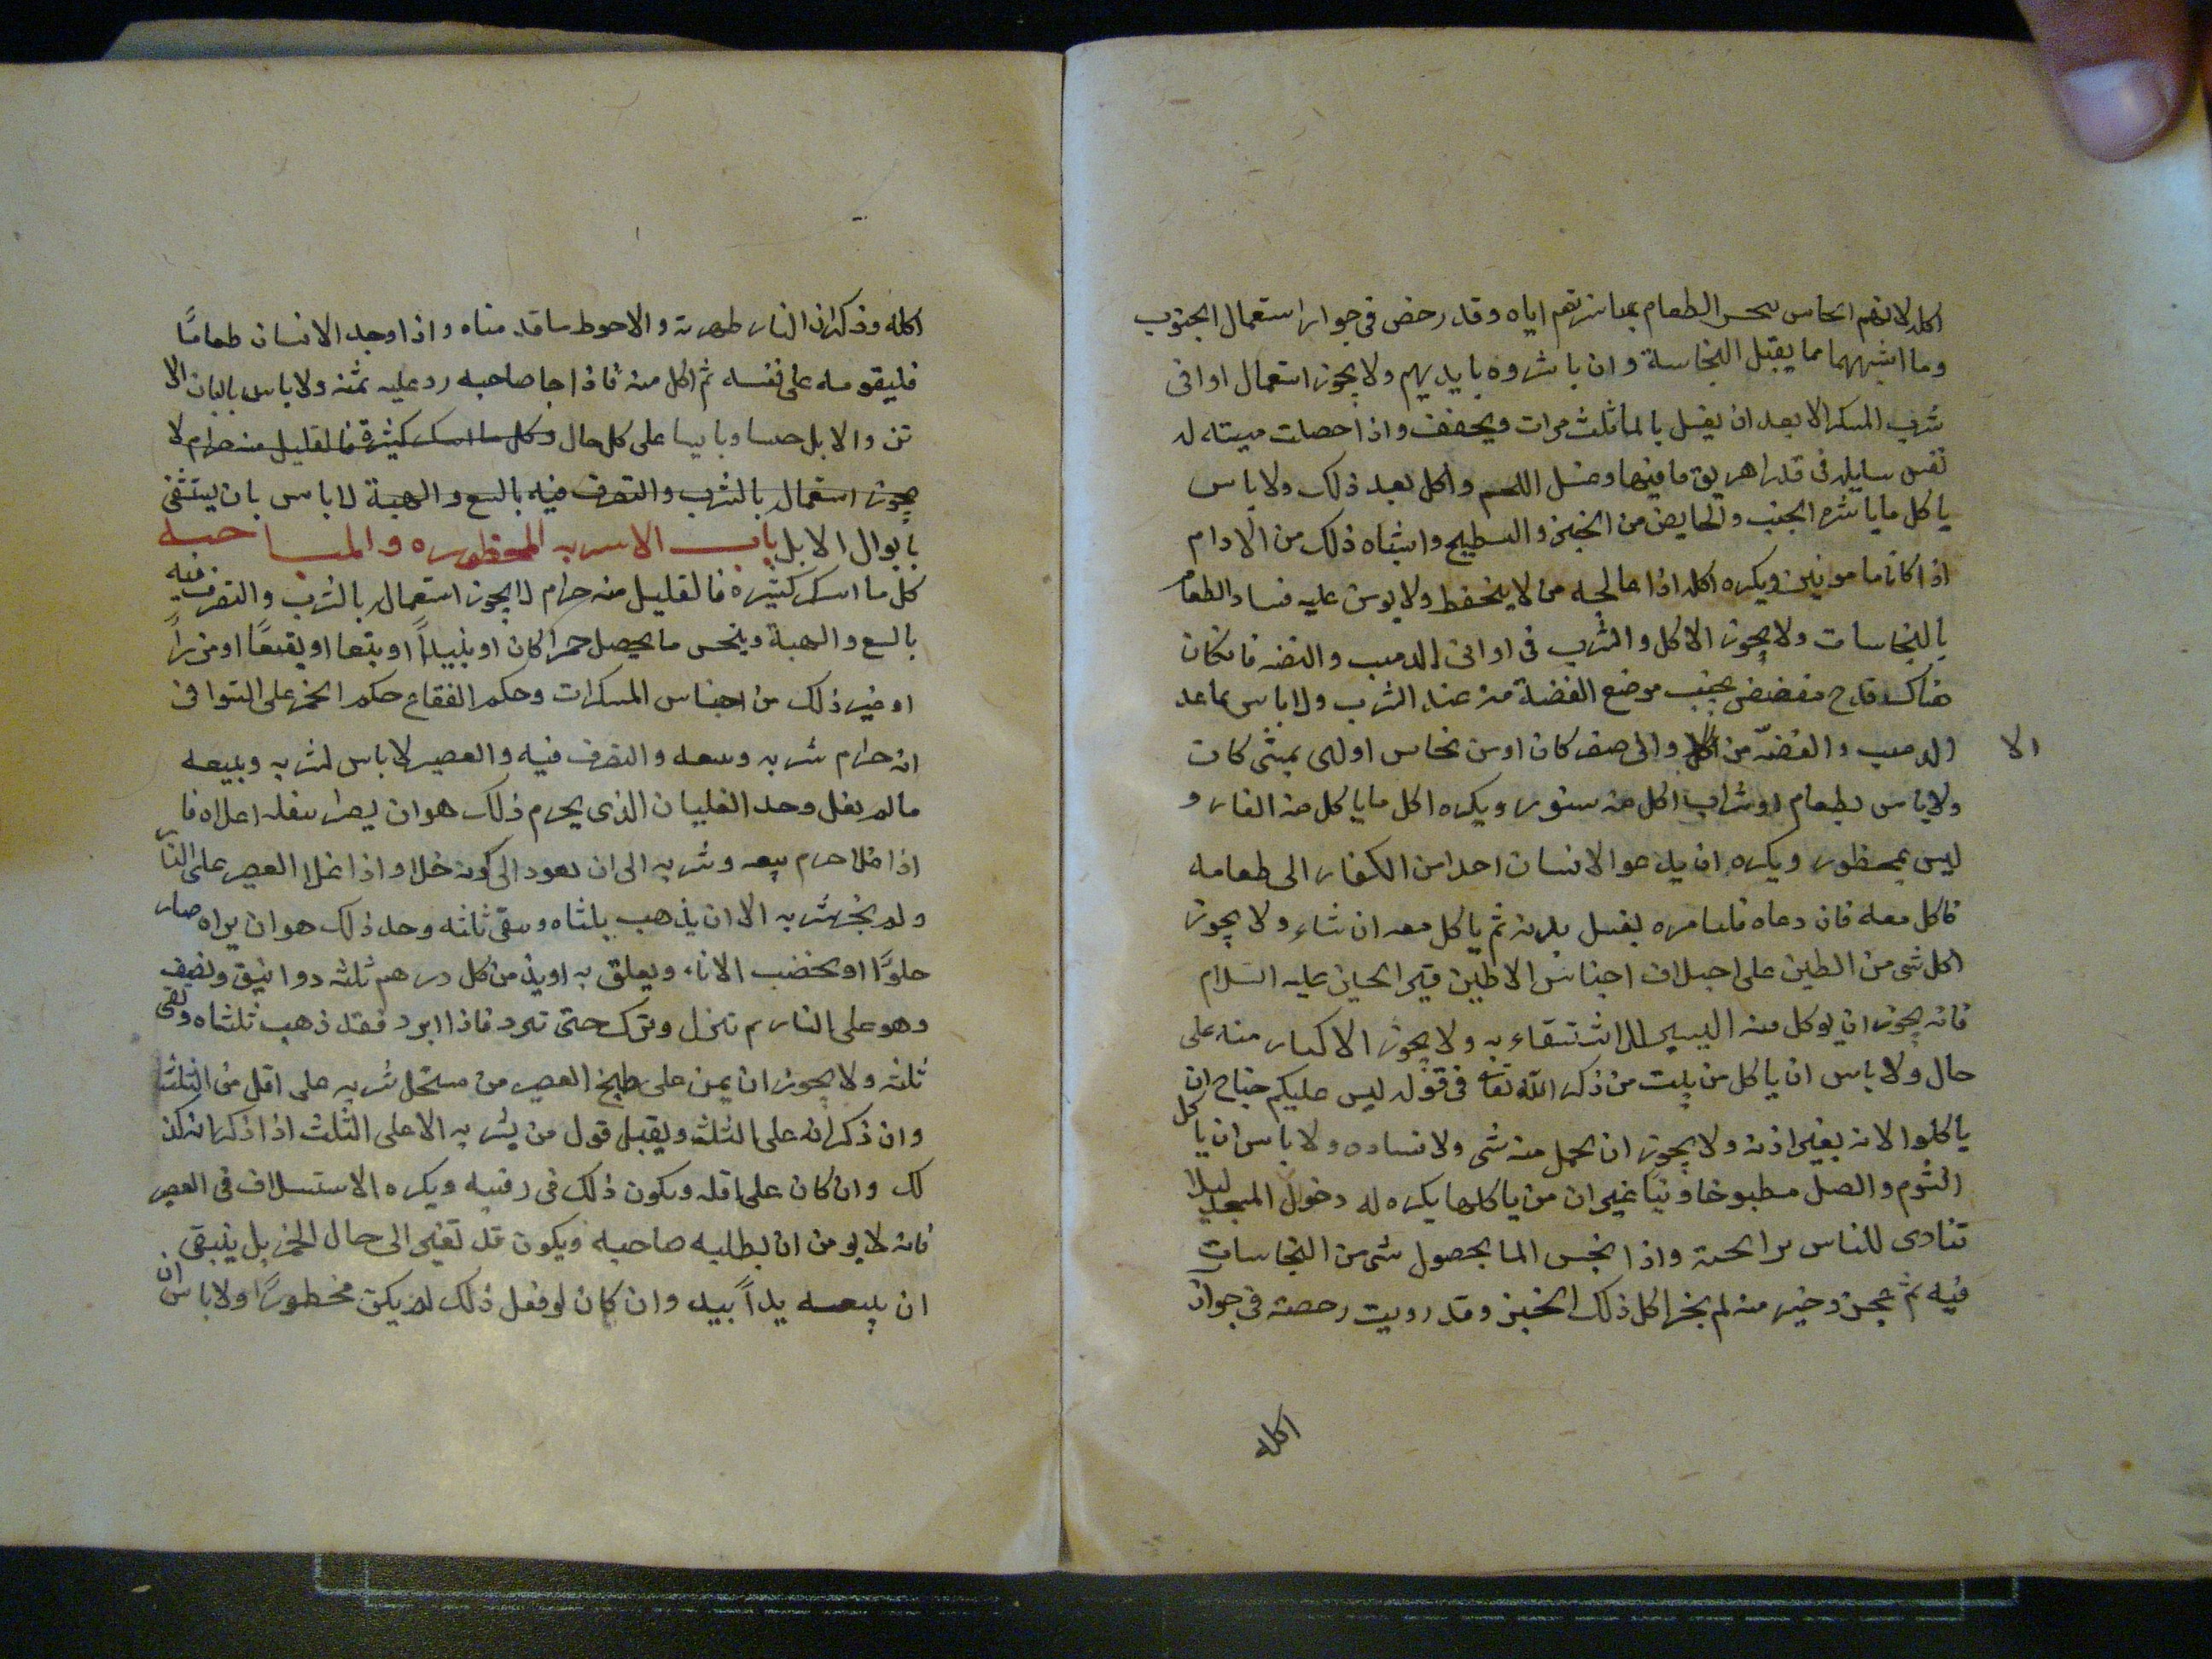 اكله لانهم انجاس ينجس الطعام بمباشرتهم اياه وقد رخص في جواز استعمال الحبوب
وما اشبههما مما يقبل النجاسة وان باشروه بايديهم ولا يجوز استعمال اواني
شرب المسكر الا بعد ان يغسل بالماء ثلث مرات ويجفف واذا حصلت ميتته له
نفس سايله في قدر اهريق ما فيها وغسل اللحم واكل بعد ذلك ولا باس
ياكل ما باشره الجنب والحايض من الخبز والطبيخ واشباه ذلك من الادام
اذا كانا مامونين ويكره اكله اذا عالجه من لا يتحفظ ولا يومن عليه فساد الطعام
بالنجاسات ولا يجوز الاكل والشرب في اواني الذهب والفضه فانكان
هناك قدح مفضض يجنب موضع الفضة منه عند الشرب ولا باس بما عد
الذهب والفضة من الا واني صفر كان او من نحاس او اي شي كانت
ولا باس بطعام او شراب اكل منه سنور ويكره اكل ما ياكل منه الفار و
ليس بمحظور ويكره ان يدعو الانسان احدا من الكفار الى طعامه
فاكل معه فان دعاه فليامره بغسل يديه ثم ياكل معه ان شاء ولا يجوز
اكل شي من الطين على اختلاف اجناسه الا طين قبر الحسين عليه السلام
فانه يجوز ان يوكل منه اليسير للاستشفاء به ولا يجوز الاكثار منه على
حال ولا باس ان ياكل من بيت من ذكر الله تعالى في قوله ليس عليكم جناح ان
ياكلوا الانه بغير اذنه ولا يجوز ان يحمل منه شي ولا فساده ولا باس ان ياكل
الثوم والبصل مطبوخا ونيا غير ان من ياكلها يكره له دخول المسجد ليلا
تتاذى للناس برايحته واذا نجس الما بحصول شي من النجاسات
فيه ثم عجن وخبز منه لم يجز اكل ذلك الخبز وقد رويت رخصه في جواز
الا
اكله
اكله وذكر ان النار طهرته والاحوط ما قدمناه واذا وجد الانسان طعامًا
فليقومه على نفسه ثم اكل منه فاذا جا صاحبه رد عليه ثمنه ولا باس بالبان الا
تن والابل حسا وبابسا على كل حال وكل ما اسكر كثيرة فالقليل منه حرام لا
يجوز استعماله بالشرب والتصرف فيه بالبيع والهبة لا باس بان يستشفي
بابوال الابل باب الاشربه المحظوره والمباحه
كل ما اسكر كثيره فالقليل منه حرام لا يجوز استعماله بالشرب والتصرف فيه
بالبيع والهبة وينجس ما يحصل خمرا كان او نبيذاً او بتعا او نقيعًا او مزراً
او غير ذلك من اجناس المسكرات وحكم الفقاع حكم الخمر على السوا في
انه حرام شربه وبيعه والتصرف فيه والعصير لا باس بشربه وبيعه
مالم يغل وحد الغليان الذي يحرم ذلك هو ان يصير اسفله اعلاه فا
اذا غلا حرم بيعه وشربه الى ان يعود الى كونه خلا واذا غلا العصير على النار
ولم يجز شربه الا ان يذهب ثلثاه ويبقى ثلثه وحد ذلك هو ان يراه صار
حلوًا او يخضب الاناء ويعلق به او يذهب من كل درهم ثلثه دوانيق ونصف
وهو على النار ثم ينزل ويترك حتى تبرد فاذا ابرد فقد ذهب ثلثاه وبقي
ثلثه ولا يجوز ان يمن على طبخ العصير من يستحل شربه على اقل من الثلث
وان ذكر انه على الثلث ويقبل قول من يشربه الا على الثلث اذا ذكر انه كذ
لك وان كان على اقله ويكون ذلك في رقبته ويكره الاستسلاف في العصير
فانه لا يومن ان يطلبه صاحبه ويكون قد تغير الى حال الخمر بل ينبغي
ان يبيعه يداً بيد وان كان لو فعل ذلك لم يكن محظورًا ولا باس ان